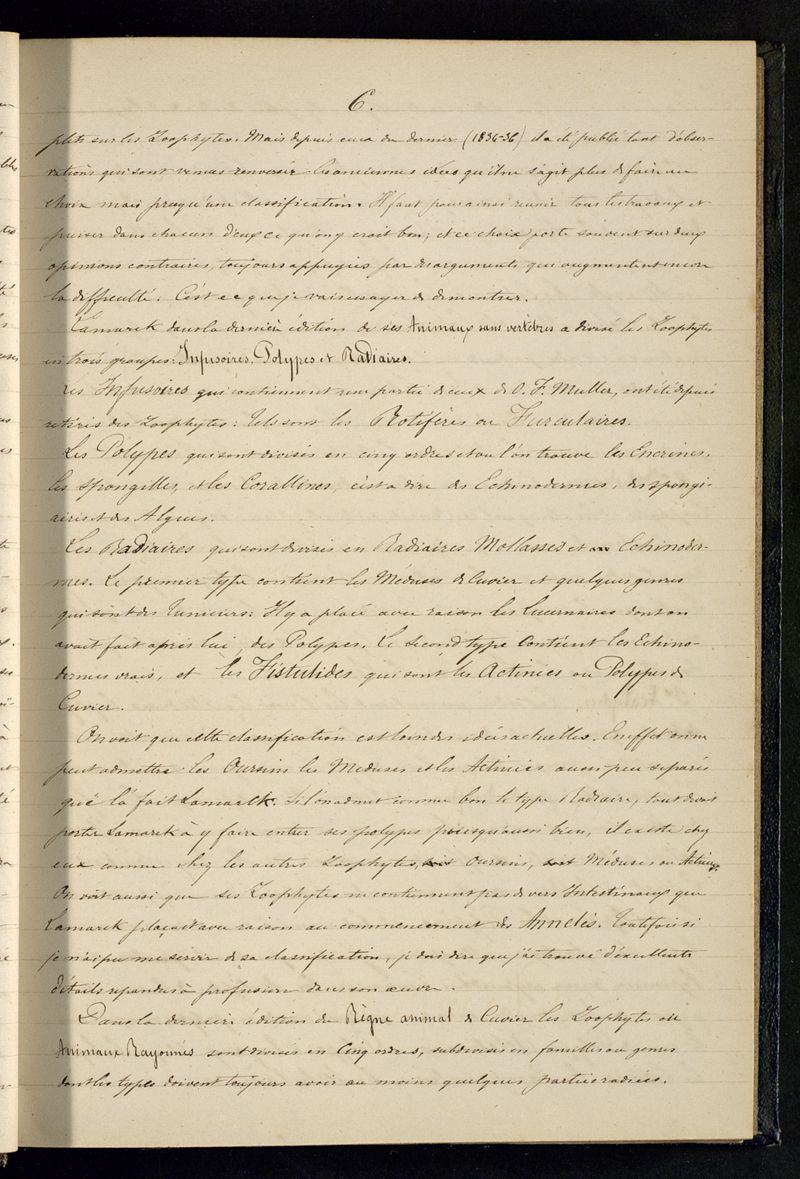 6.
plets sur les Zoophytes. Mais depuis ceux du dernier (1834-36) il a été publié tant d'obser-
vations qui sont venues renverser les anciennes idées qu'il ne s'agit plus de faire un
choix mais presqu'une classification. Il faut pour ainsi reunir tous les travaux et
puiser dans chacun d'eux ce qu'on y croit bon; et ce choix porte souvent sur deux
opinions contraires, toujours appuyées par des arguments qui augmentent encore
la difficulté. C'est ce que je vais essayer de demontrer.
Lamarck dans la dernière édition de ses Animaux sans vertèbres a divisé les Zoophytes
en trois groupes: Infusoires, Polypes et Radiaires.
Les Infusoires qui contiennent une partie de ceux de O. F. Muller, ont été depuis
retirés des Zoophytes: tels sont les Rotifères ou Furculaires.
Les Polypes qui sont divisés en cinq ordres et ou l'on trouve les Encrines,
les Spongilles, et les Corallines, c'est a dire des Echinodermes, des spongi-
aires et des Algues.
Les Radiaires qui sont divisés en Radiaires Mollasses et en Echinoder-
mes. Le premier type contient les Méduses de Cuvier et quelques genres
qui sont des tuniciers: Il y a placé avec raison les Lucernaires dont on
avait fait après lui, des Polypes. Le second type contient les Echino-
dermes vrais, et les Fistulides qui sont les Actinies ou Polypes de
Cuvier.
On voit que cette classification est loin des idées actuelles. En effet on ne
peut admettre les Oursins les Meduses et les Actinies aussi peu separés
que l'a fait Lamarck. Si l'on admet comme bon le type Radiaire, tout devait
porter Lamarck à y faire entrer ses polypes puisqu'aussi bien, il existe chez
eux comme chez les autres Zoophytes, soit Oursins, soit Méduses ou Actinies.
On voit aussi que ses Zoophytes ne contiennent pas de vers Intestinaux que
Lamarck plaçait avec raison au commencement des Annelés. Toutefois si
je n'ai pu me servir de sa classification, je dois dire que j'ai trouvé d'excellents
détails repandus à profusion dans son œuvre.
Dans la dernière édition du Règne animal de Cuvier les Zoophytes ou
Animaux Rayonnés sont divisés en Cinq ordres, subdivisés en familles ou genres
dont les types doivent toujours avoir au moins quelques parties radiées.